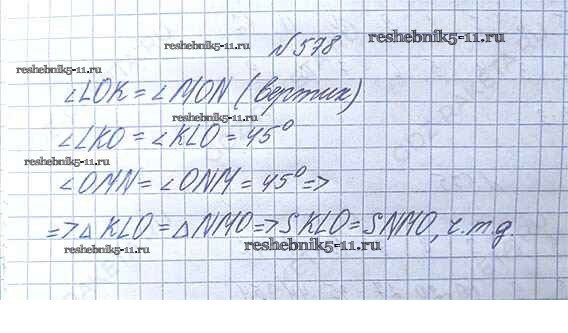 №578
reshebnik5-11.ru
reshebnik5-11.ru
reshebnik5-11.ru
∠LOK = ∠MON (вертик)
reshebnik5-11.ru
∠LKO = ∠KLO = 45°
reshebnik5-11.ru
∠OMN = ∠ONM = 45° =>
=> △KLO = △NMO => SKLO = SNMO, ч.т.д
reshebnik5-11.ru
reshebnik5-11.ru